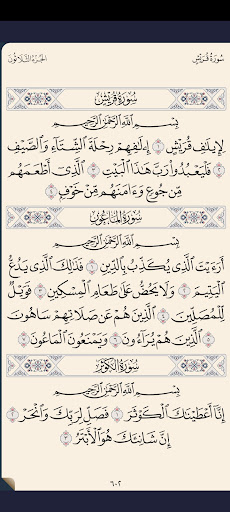 سُورَةُ قُرَيْشٍ الجُزْءُ الثَّلَاثُونَ
سُورَةُ قُرَيْشٍ
بِسْمِ ٱللَّهِ ٱلرَّحْمَٰنِ ٱلرَّحِيمِ
لِإِيلَٰفِ قُرَيْشٍ ١ إِۦلَٰفِهِمْ رِحْلَةَ ٱلشِّتَآءِ وَٱلصَّيْفِ
٢ فَلْيَعْبُدُوا۟ رَبَّ هَٰذَا ٱلْبَيْتِ ٣ ٱلَّذِىٓ أَطْعَمَهُم
مِّن جُوعٍ وَءَامَنَهُم مِّنْ خَوْفٍۭ ٤
سُورَةُ المَاعُونِ
بِسْمِ ٱللَّهِ ٱلرَّحْمَٰنِ ٱلرَّحِيمِ
أَرَءَيْتَ ٱلَّذِى يُكَذِّبُ بِٱلدِّينِ ١ فَذَٰلِكَ ٱلَّذِى يَدُعُّ
ٱلْيَتِيمَ ٢ وَلَا يَحُضُّ عَلَىٰ طَعَامِ ٱلْمِسْكِينِ ٣ فَوَيْلٌ
لِّلْمُصَلِّينَ ٤ ٱلَّذِينَ هُمْ عَن صَلَاتِهِمْ سَاهُونَ
٥ ٱلَّذِينَ هُمْ يُرَآءُونَ ٦ وَيَمْنَعُونَ ٱلْمَاعُونَ ٧
سُورَةُ الكَوْثَرِ
بِسْمِ ٱللَّهِ ٱلرَّحْمَٰنِ ٱلرَّحِيمِ
إِنَّآ أَعْطَيْنَٰكَ ٱلْكَوْثَرَ ١ فَصَلِّ لِرَبِّكَ وَٱنْحَرْ ٢
إِنَّ شَانِئَكَ هُوَ ٱلْأَبْتَرُ ٣
٦٠٢